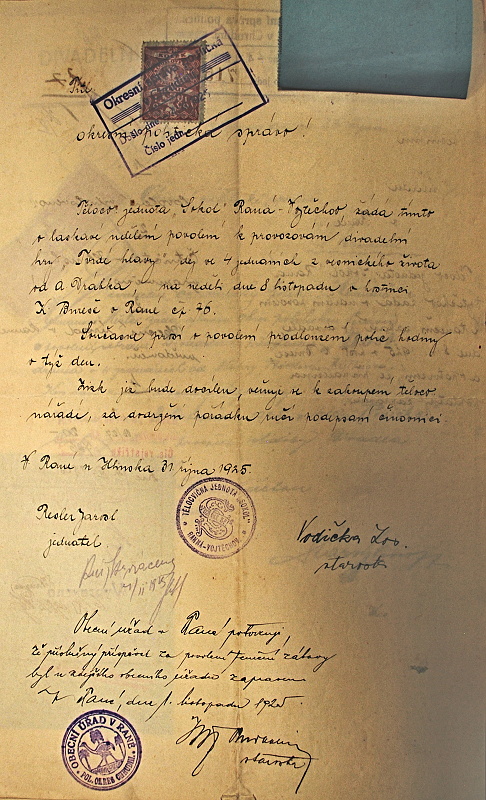 Okresní
Číslo jedn.
okresní politická správo!
Těloc. jednota "Sokol" Raná-Vojtěchov, žádá tímto
o laskavé udělení povolení k provozování divadelní
hry "Tvrdé hlavy" děj ve 4 jednáních z vesnického života
od A. Vrábka na neděli dne 8 listopadu v hostinci
K. Bureše v Rané čp 76.
Současně prosí o povolení prodloužení polic. hodiny
v týž den.
Zisk jež bude docílen, věnuje se k zakoupení těloc.
nářadí, za pořádku ručí podepsaní činovníci.
V Rané u Hlinska 31 října 1925.
Resler Jarosl.
jednatel.
TĚLOCVIČNÁ JEDNOTA "SOKOL"
RANÁ-VOJTĚCHOV
Vodička Jos.
starosta
Obecní úřad v Rané potvrzuje,
že příslušný příspěvek za povolení taneční zábavy
byl u zdejšího obecního úřadu zapraven
V Rané, dne 1. listopadu 1925.
starosta
OBECNÍ ÚŘAD V RANÉ
POL. OKRES CHRUDIM